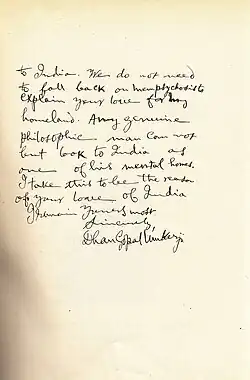 to India. We do not need
to fall back on metempsychosis to
explain your love for my
homeland. Any genuine
philosophic man can not
but look to India as
one of his mental homes.
I take this to be the reason
of your love of India
I remain Yours most
Sincerely
Dhan Gopal Mukerji